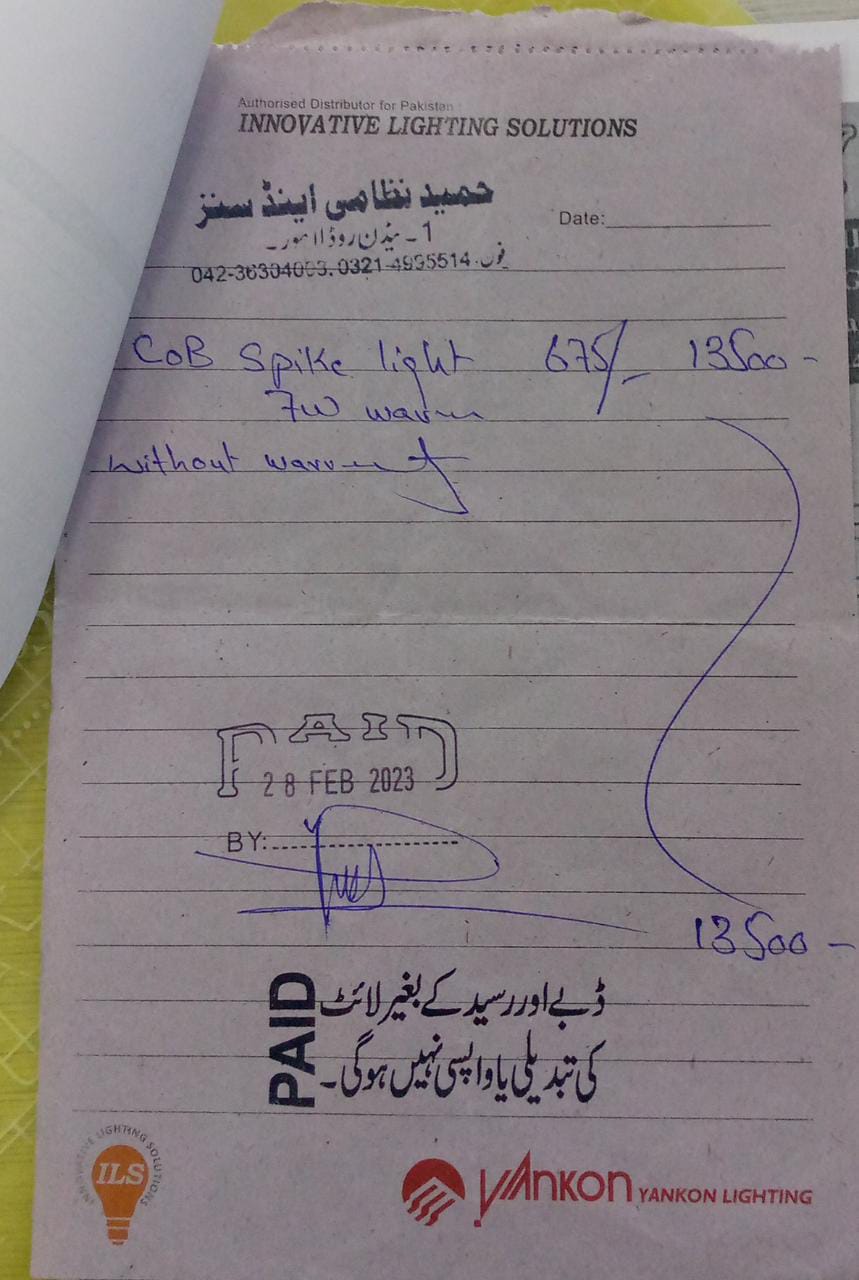 Authorised Distributor for Pakistan :
INNOVATIVE LIGHTING SOLUTIONS
حمید نظامی اینڈ سنز
Date:
1 - بیڈن روڈ لاہور۔
فون: 0321-4995514
COB Spike light 675/- 13500-
7W warm
without warranty
PAID
28 FEB 2023
BY:
13500-
PAID
ڈبے اور رسید کے بغیر لائٹ
کی تبدیلی یا واپسی نہیں ہوگی۔
INNOVATIVE LIGHTING SOLUTIONS
ILS
YANKON YANKON LIGHTING